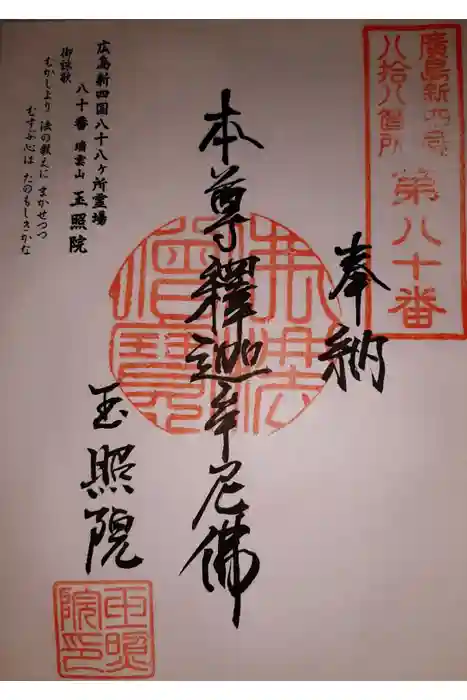 廣島新四国
八拾八箇所
第八十番
奉納
本尊釋迦牟尼佛
佛法
僧寶
玉照院
玉照
院印
広島新四国八十八ヶ所霊場
八十番 瑞雲山 玉照院
御詠歌
むかしより 法の教えに まかせつつ
むすぶ心は たのもしきかな